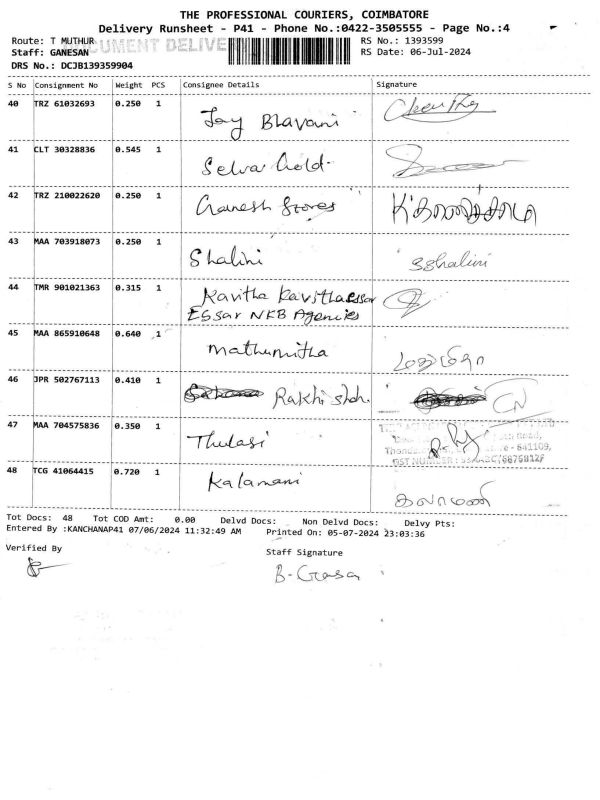 THE PROFESSIONAL COURIERS, COIMBATORE
Delivery Runsheet - P41 - Phone No.:0422-3505555 - Page No.:4
Route: T MUTHUR
DOCUMENT DELIVE
RS No.: 1393599
Staff: GANESAN
RS Date: 06-Jul-2024
DRS No.: DCJB139359904
S No Consignment No Weight PCS Consignee Details Signature
40 TRZ 61032693 0.250 1 Jay Bhavani
41 CLT 30328836 0.545 1 Selva Gold
42 TRZ 210022620 0.250 1 Ganesh Stores
43 MAA 703918073 0.250 1 Shalini sshalini
44 TMR 901021363 0.315 1 Kavitha Kavitha Essar
ESSar NKB Agencies
45 MAA 865910648 0.640 1 mathumitha
46 JPR 502767113 0.410 1 Rakhi CN
47 MAA 704575836 0.350 1 Thulasi
641109,
GST NUMBER
48 TCG 41064415 0.720 1 Kalamani கலாமணி
Tot Docs: 48 Tot COD Amt: 0.00 Delvd Docs: Non Delvd Docs: Delvy Pts:
Entered By :KANCHANAP41 07/06/2024 11:32:49 AM Printed On: 05-07-2024 23:03:36
Verified By
Staff Signature